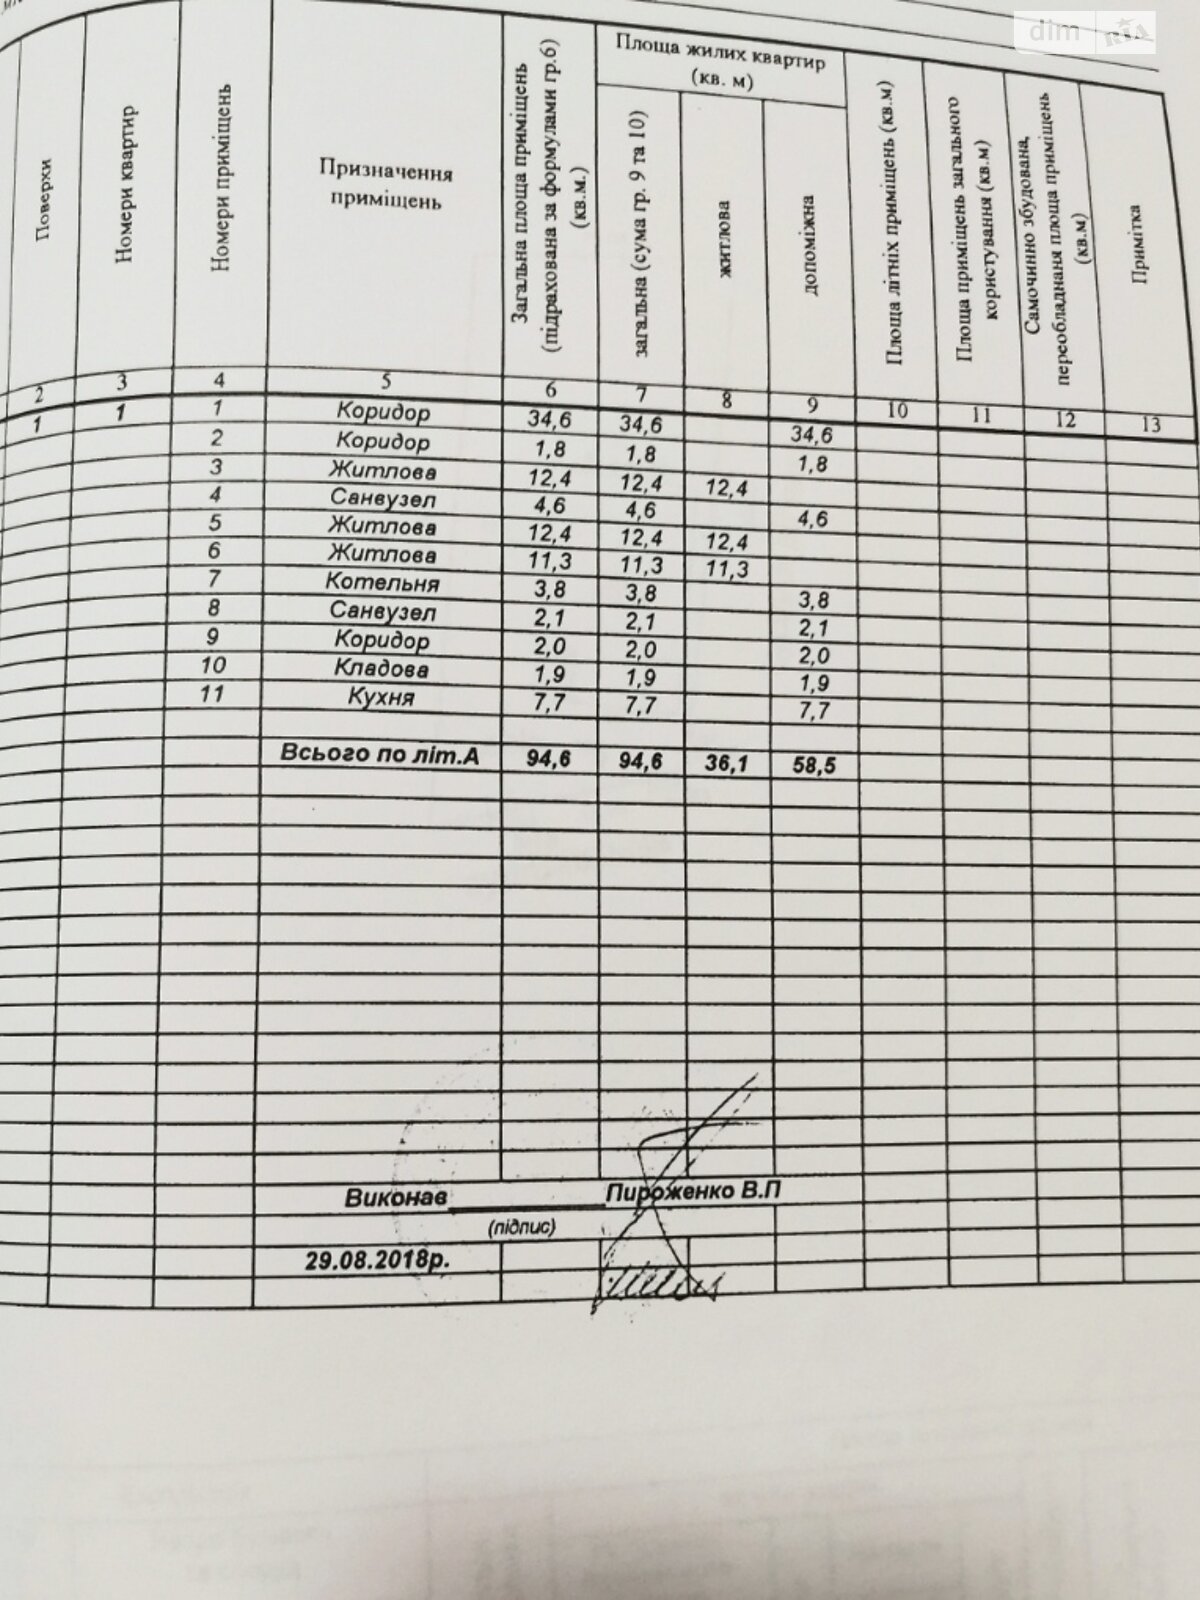 dim RIA
Поверхи
Номери квартир
Номери приміщень
Призначення
приміщень
Загальна площа приміщень
(підрахована за формулами гр.6)
(кв.м.)
Площа жилих квартир
(кв. м)
загальна (сума гр. 9 та 10)
житлова
допоміжна
Площа літніх приміщень (кв.м)
Площа приміщень загального
користування (кв.м)
Самочинно збудована,
переобладнаня площа приміщень
(кв.м)
Примітка
2 3 4 5 6 7 8 9 10 11 12 13
1 1 1 Коридор 34,6 34,6 34,6
2 Коридор 1,8 1,8 1,8
3 Житлова 12,4 12,4 12,4
4 Санвузел 4,6 4,6 4,6
5 Житлова 12,4 12,4 12,4
6 Житлова 11,3 11,3 11,3
7 Котельня 3,8 3,8 3,8
8 Санвузел 2,1 2,1 2,1
9 Коридор 2,0 2,0 2,0
10 Кладова 1,9 1,9 1,9
11 Кухня 7,7 7,7 7,7
Всього по літ.А 94,6 94,6 36,1 58,5
Виконав Пироженко В.П
(підпис)
29.08.2018р.